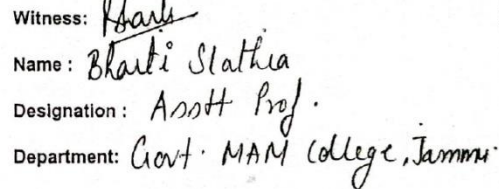 Witness:
Name : Bharti Slathia
Designation : Asstt Prof.
Department: Govt. MAM College, Jammu.